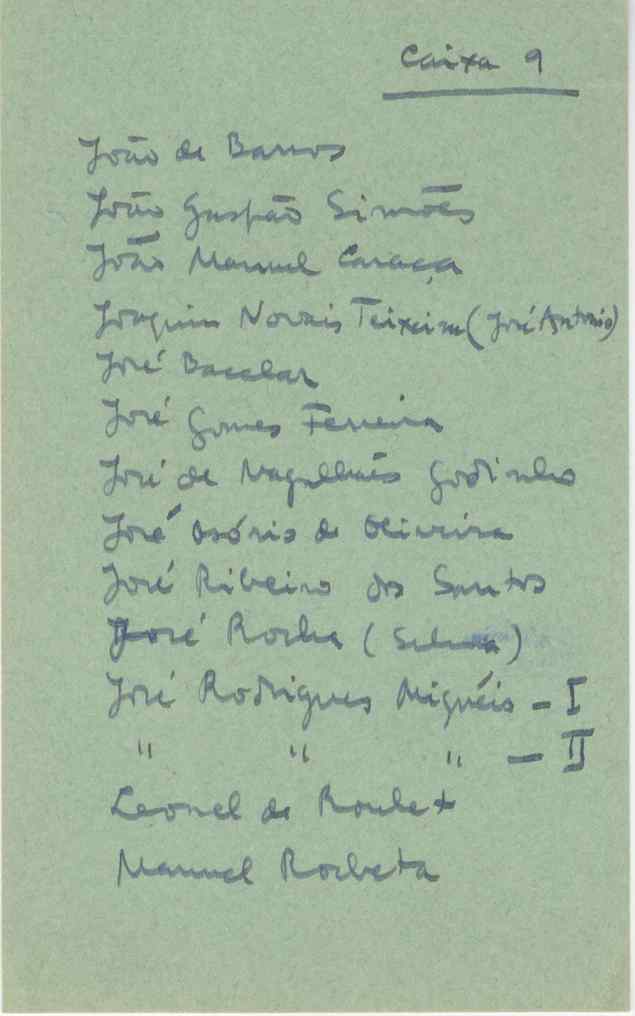 Caixa 9
João de Barros
João Gaspar Simões
João Manuel Caraça
Joaquim Novais Teixeira (José Antonio)
José Bacelar
José Gomes Ferreira
José de Magalhães Godinho
José Osório de Oliveira
José Ribeiro dos Santos
José Rocha (Selma)
José Rodrigues Miguéis - I
" " " - II
Leonel de Roulet
Manuel Rocheta